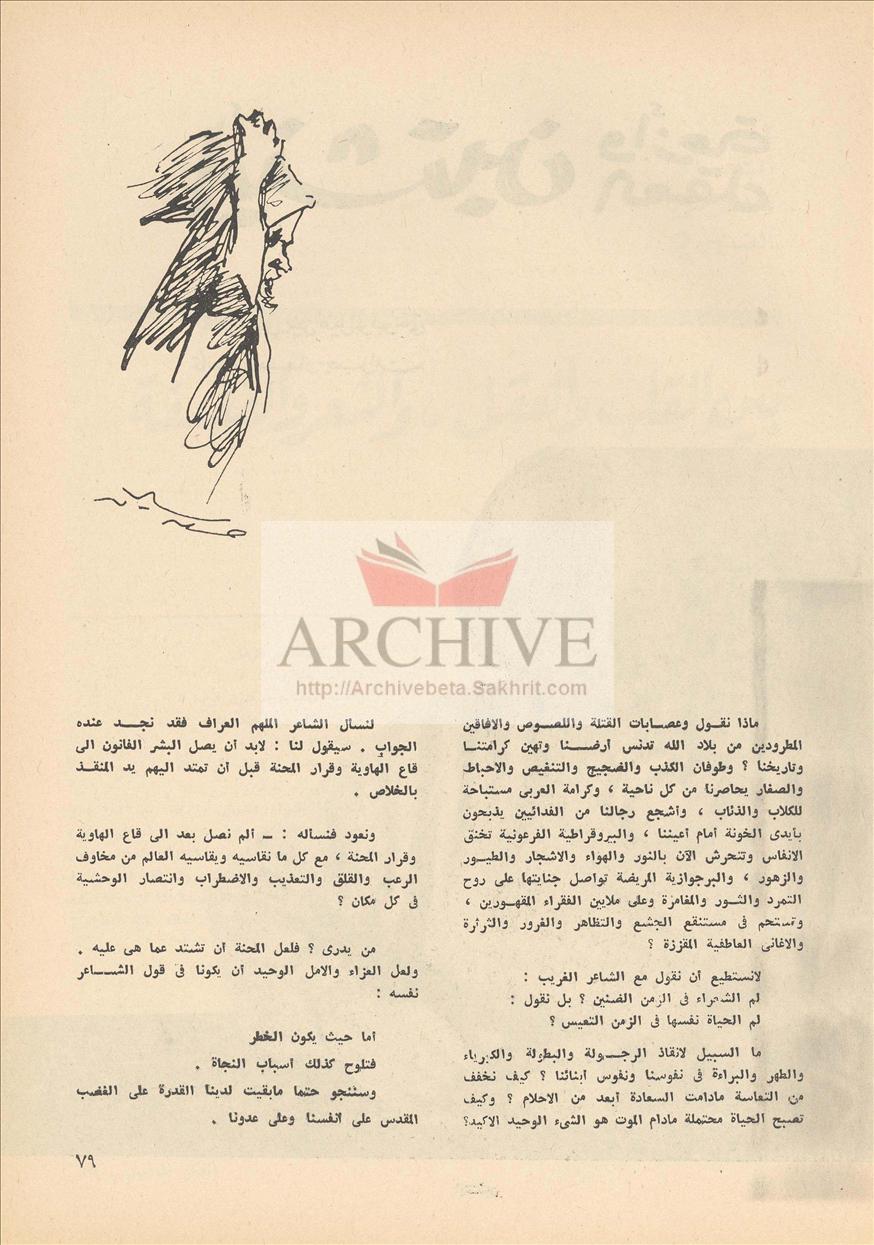 ماذا نقــول وعصــابات القتلة واللصــوص والافاقين
المطرودين من بلاد الله تدنس أرضــنا وتهين كرامتنــا
وتاريخنا ؟ وطوفان الكذب والضجيج والتنفيص والاحباط
والصغار يحاصرنا من كل ناحية ، وكرامة العربى مستباحة
للكلاب والذئاب ، وأشجع رجالنا من الفدائيين يذبحون
بأيدى الخونة أمام أعيننا ، والبيروقراطية الفرعونية تخنق
الانفاس وتتحرش الآن بالنور والهواء والاشجار والطيــور
والزهور ، والبرجوازية المريضة تواصل جنايتها على روح
التمرد والثــور والمغامرة وعلى ملايين الفقراء المقهــورين ،
وتستحم فى مستنقع الجشع والتظاهر والغرور والثرثرة
والاغانى العاطفية المقززة ؟
لانستطيع أن نقول مع الشاعر الغريب :
لم الشعراء فى الزمن الضنين ؟ بل نقول :
لم الحياة نفسها فى الزمن التعيس ؟
ما السبيل لانقاذ الرجــولة والبطولة والكبرياء
والطهر والبراءة فى نفوسنا ونفوس أبنائنا ؟ كيف نخفف
من التعاسة مادامت السعادة أبعد من الاحلام ؟ وكيف
تصبح الحياة محتملة مادام الموت هو الشىء الوحيد الاكيد؟
لنسأل الشاعر الملهم العراف فقد نجــد عنده
الجواب . سيقول لنا : لابد أن يصل البشر الفانون الى
قاع الهاوية وقرار المحنة قبل أن تمتد اليهم يد المنقــذ
بالخلاص .
ونعود فنسأله : ــ ألم نصل بعد الى قاع الهاوية
وقرار المحنة ، مع كل ما نقاسيه ويقاسيه العالم من مخاوف
الرعب والقلق والتعذيب والاضطراب وانتصار الوحشية
فى كل مكان ؟
من يدرى ؟ فلعل المحنة أن تشتد عما هى عليه .
ولعل العزاء والامل الوحيد أن يكونا فى قول الشــاعر
نفسه :
أما حيث يكون الخطر
فتلوح كذلك أسباب النجاة .
وسننجو حتما مابقيت لدينا القدرة على الغضب
المقدس على أنفسنا وعلى عدونا .
٧٩
ARCHIVE
http://Archivebeta.Sakhrit.com